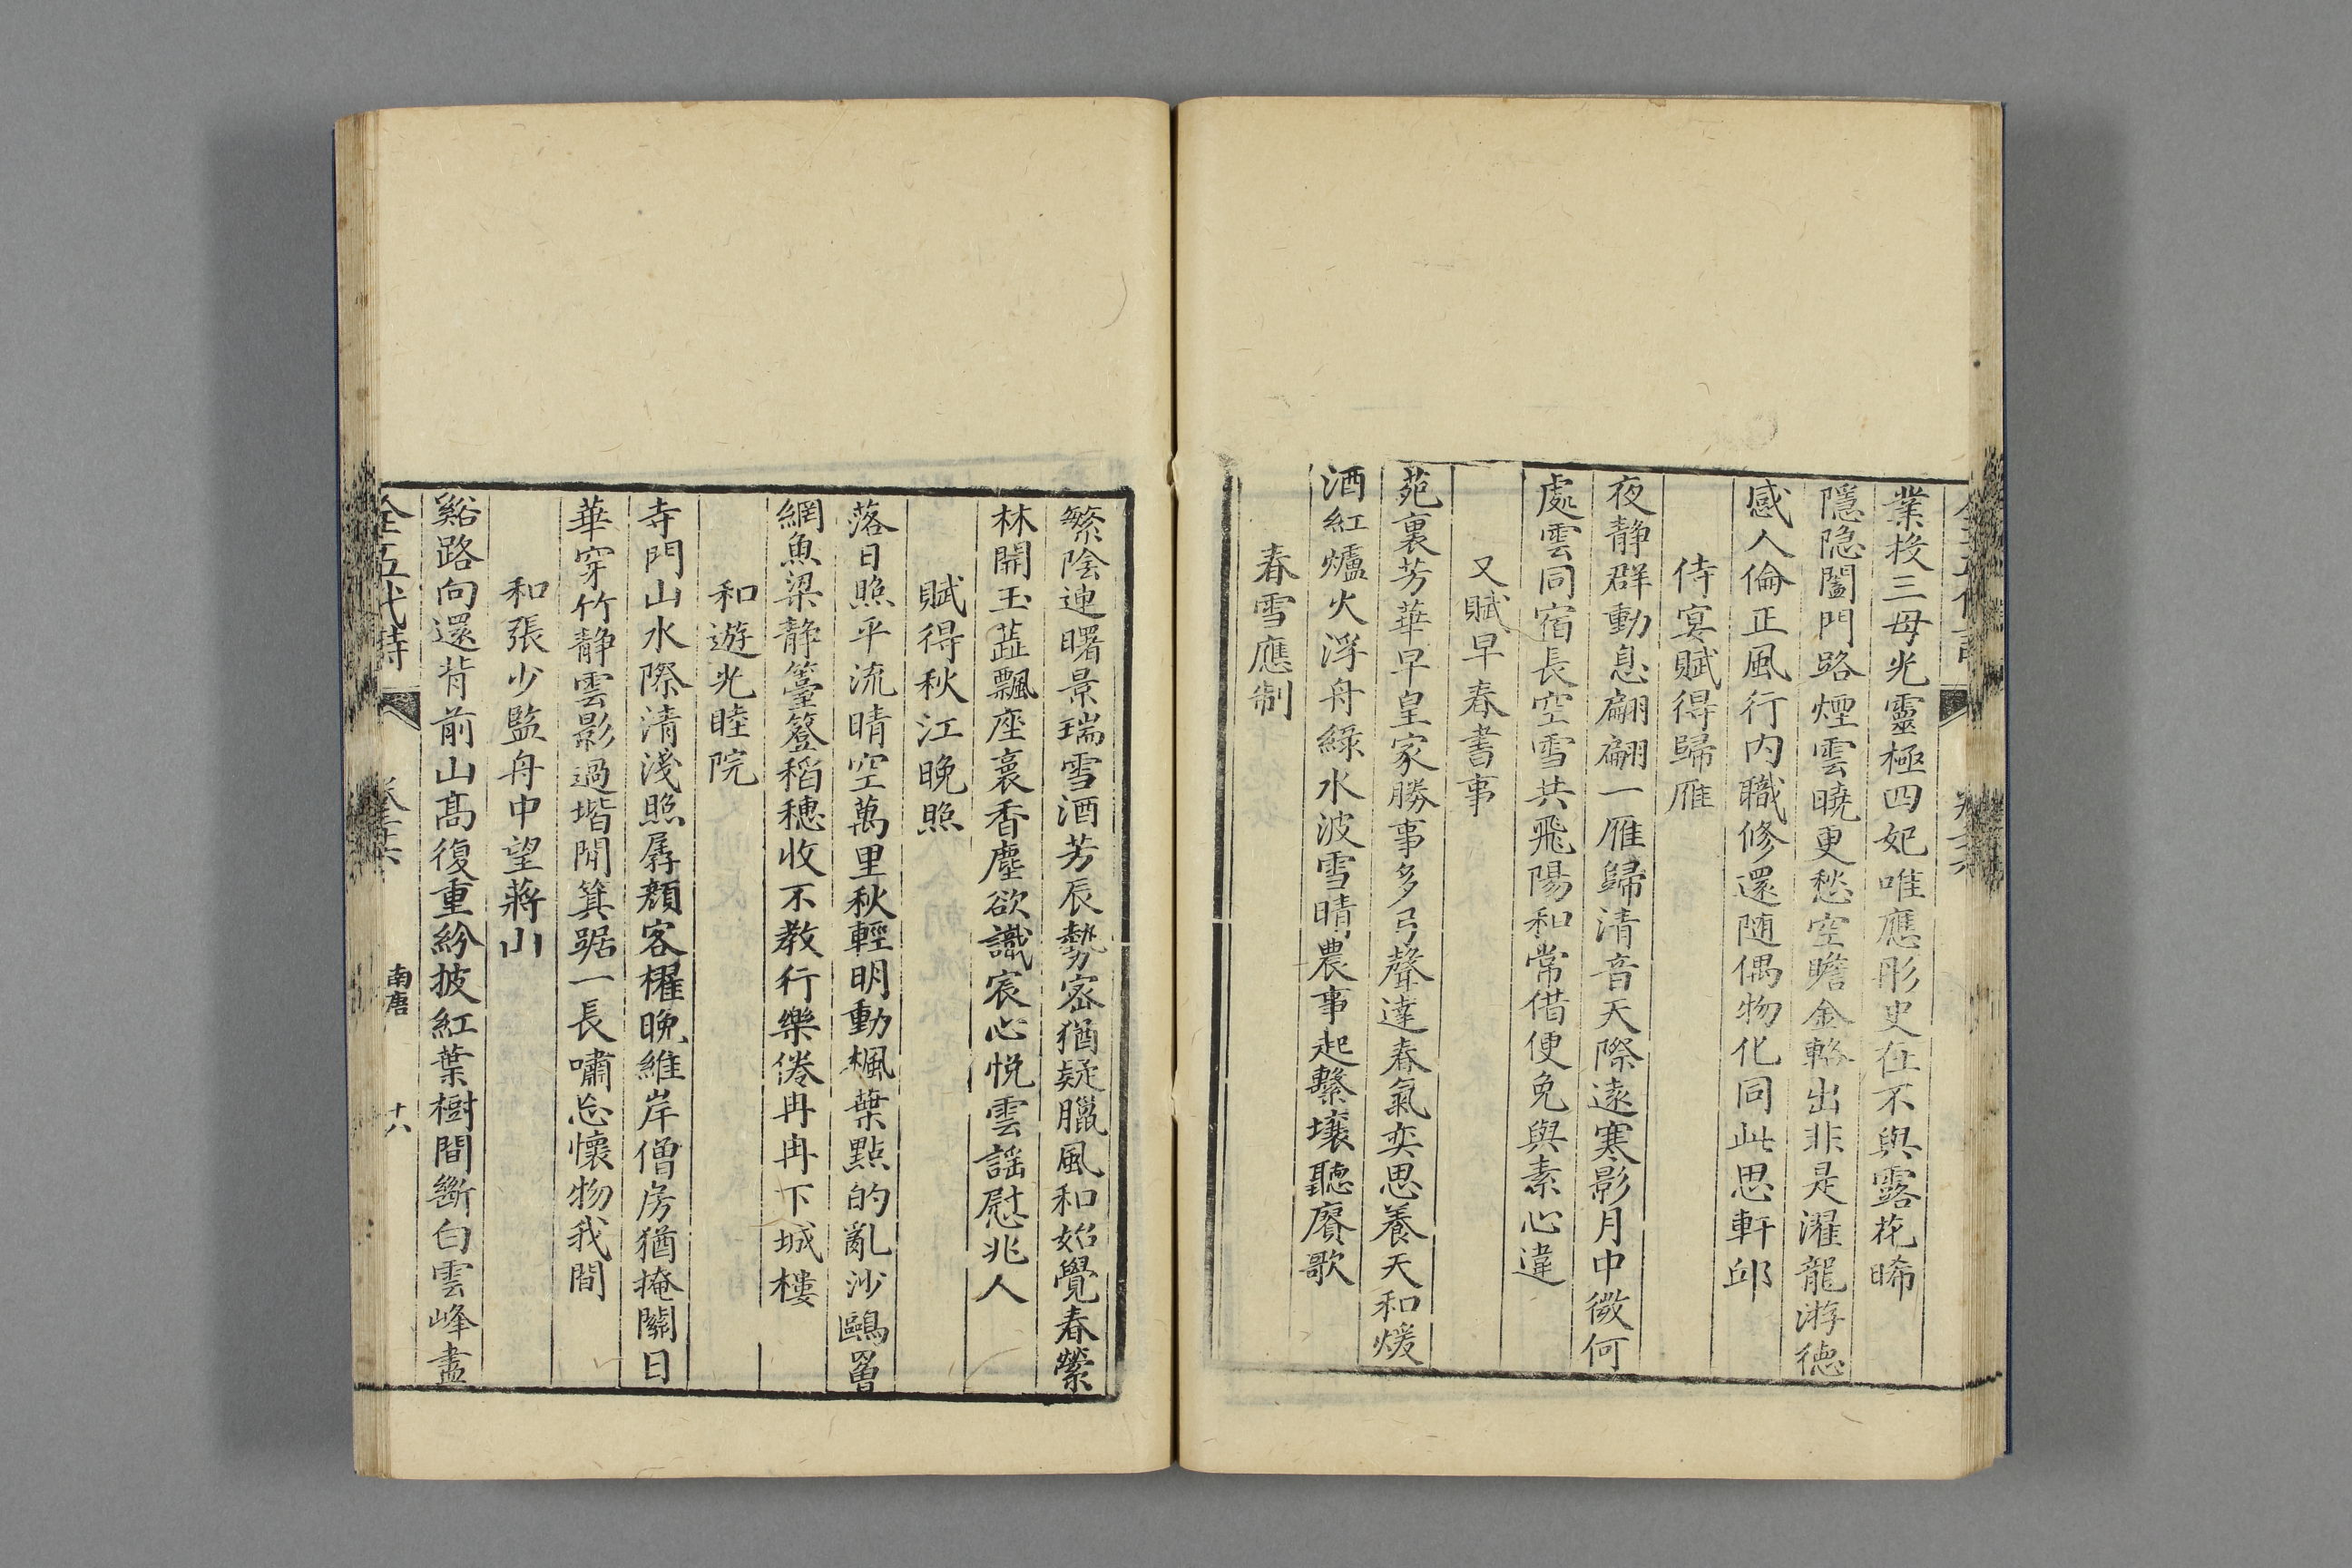 業投三母光靈極四妃唯應彤史在不與露花晞
隱隐闔門路煙雲曉更愁空瞻金輅出非是濯龍游德
感人倫正風行内職修還随偶物化同此思軒邱
侍宴賦得歸雁
夜静群動息翩翩一雁歸清音天際遠寒影月中微何
處雲同宿長空雪共飛陽和常借便免與素心違
又賦早春書事
苑裏芳華早皇家勝事多弓聲達春氣奕思養天和煖
酒紅爐火浮舟綠水波雪晴農事起擊壤聽賡歌
春雪應制
繁陰連曙景瑞雪洒芳辰勢密猶疑臘風和始覺春縈
林開玉蘂飄座裛香塵欲識宸心悦雲謡慰兆人
賦得秋江晚照
落日照平流晴空萬里秋輕明動楓葉點的亂沙鷗罾
網魚梁静籉簦稻穗收不教行樂倦冉冉下城樓
和遊光睦院
寺門山水際清淺照孱顏客櫂晚維岸僧房猶掩關日
華穿竹静雲影過堦閒箕踞一長嘯忘懷物我間
和張少監舟中望蔣山
谿路向還背前山髙復重紛披紅葉樹間斷白雲峰盡
全五代詩
南唐
十八